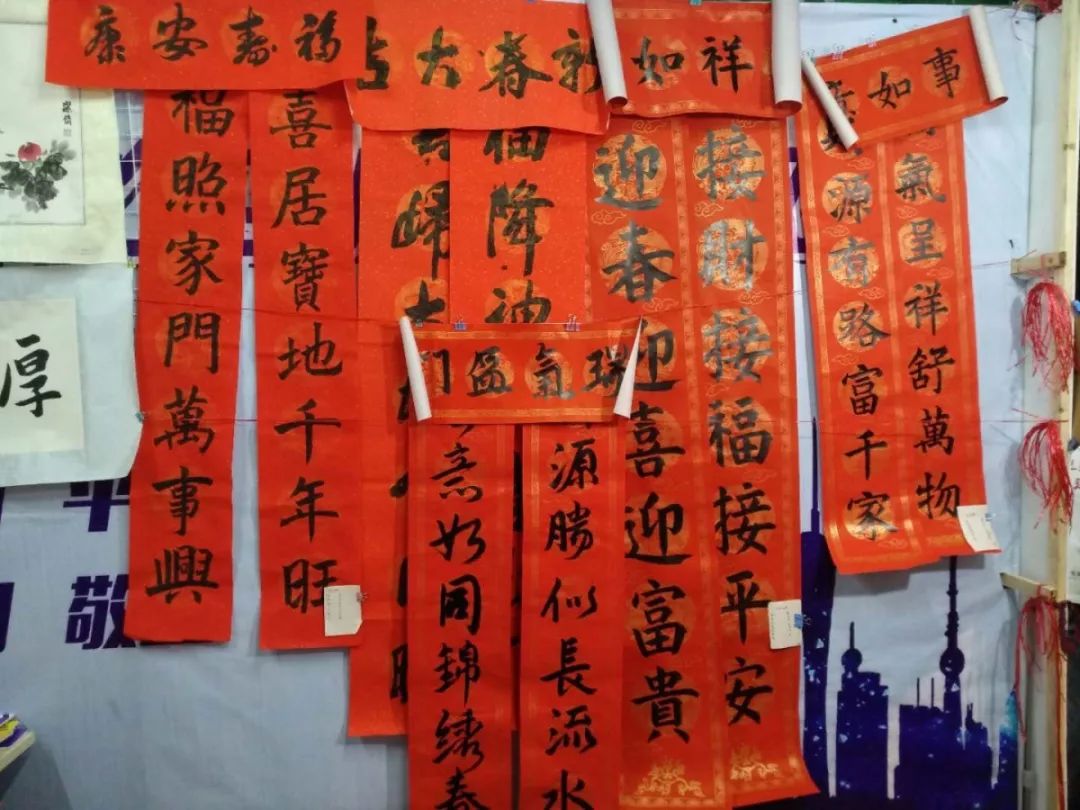 福寿安康
喜居寶地千年旺
福照家門萬事興
新春大吉
福降神
歸大
祥如
接財接福接平安
迎春迎喜迎富貴
事如意
氣呈祥舒萬物
源有路富千家
瑞氣盈门
源勝似長流水
意如同錦绣春
厚
敬